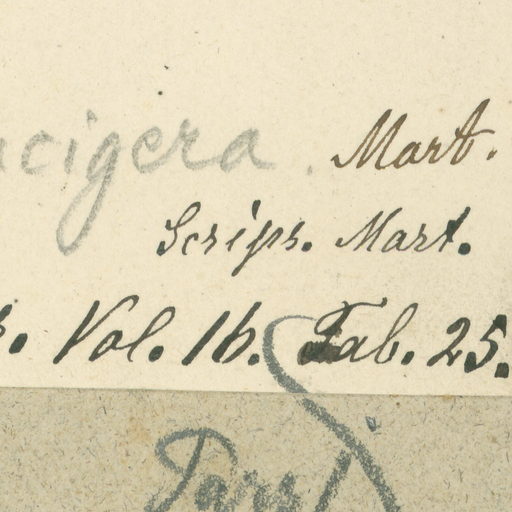 cigera. Mart.
Scrips. Mart.
Vol. 16. Tab. 25.